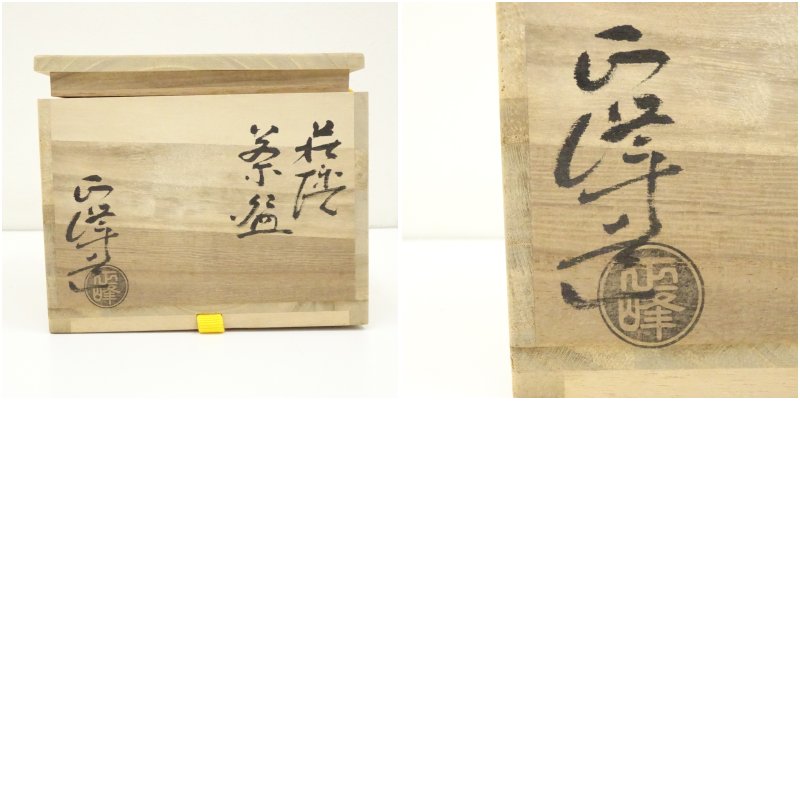 萩焼
茶盌
正峰造
正峰
正峰造
正峰